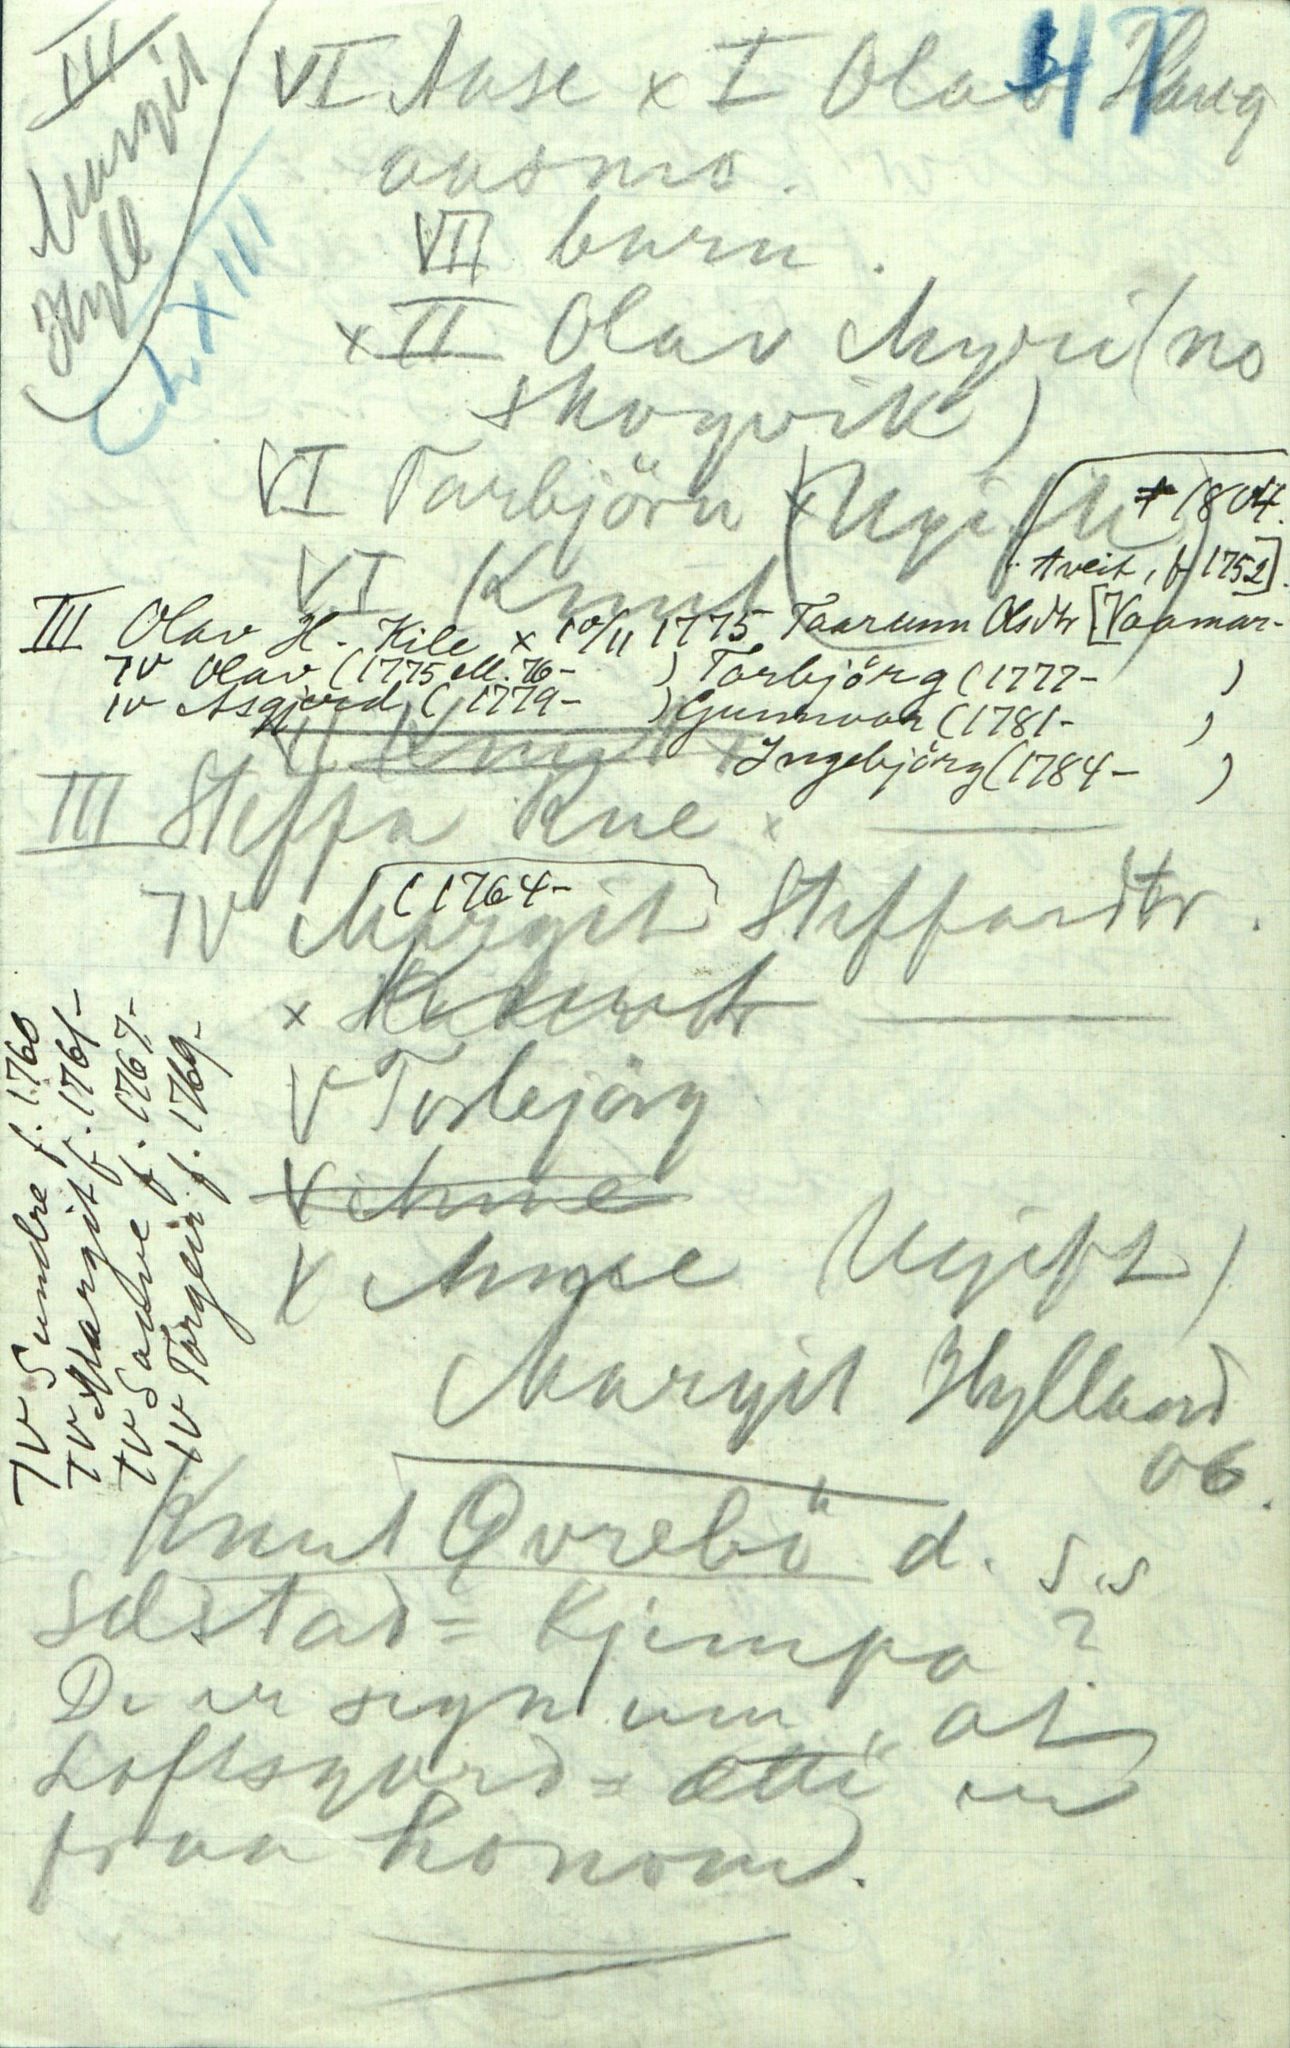 III
Margit
Hyll
LXIII
47
VI Aase x I Olav Haug
aasmo.
VII barn.
x II Olav Myri (no
Skogvik)
VI Tarbjörn x (Ugift)
VI Knut
* 1804.
tveit, f. 1752].
III Olav H. Kile x 10/11 1775 Taarunn Olsdtr [Vaamar-
IV Olav (1775 all. 76- ) Torbjörg (1777- )
IV Asgjerd (1779- ) Gunnvor (1781- )
VI Knut x
Ingebjörg (1784- )
III Steffa Rue x
(1764-
IV Margit Steffadtr.
x
V Torbjörg
V Anne
V Aase (Ugift)
Margit Hylland
06.
IV Sundre f. 1760
IV Margit f. 1761-
IV Salve f. 1767-
IV Torgeir f. 1769-
Knut Qvrebö d. s.s
Selstad = Kjempa ?
De er segn um, at
Loftsgard = ætti er
fraa honom.